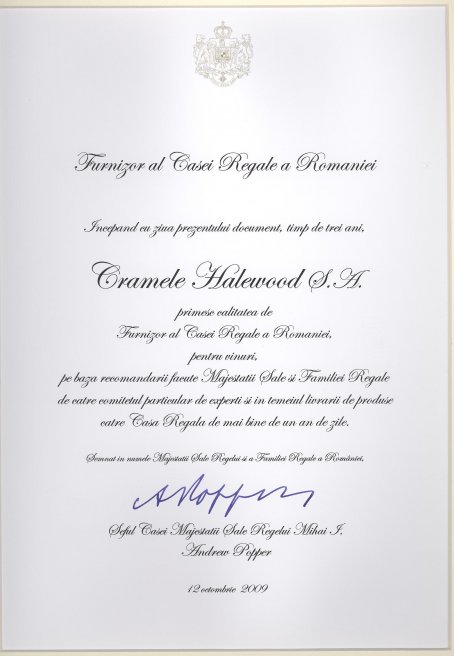 Furnizor al Casei Regale a Romaniei
Incepand cu ziua prezentului document, timp de trei ani,
Cramele Halewood S.A.
primesc calitatea de
Furnizor al Casei Regale a Romaniei,
pentru vinuri,
pe baza recomandarii facute Majestatii Sale si Familiei Regale
de catre comitetul particular de experti si in temeiul livrarii de produse
catre Casa Regala de mai bine de un an de zile.
Semnat in numele Majestatii Sale Regelui si a Familiei Regale a României,
APopper
Seful Casei Majestatii Sale Regelui Mihai I.
Andrew Popper
12 octombrie 2009